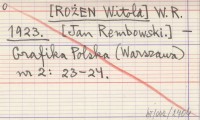 [ROŻEN Witold] W.R.
1923. [Jan Rembowski.] —
Grafika Polska (Warszawa)
nr 2: 23-24.